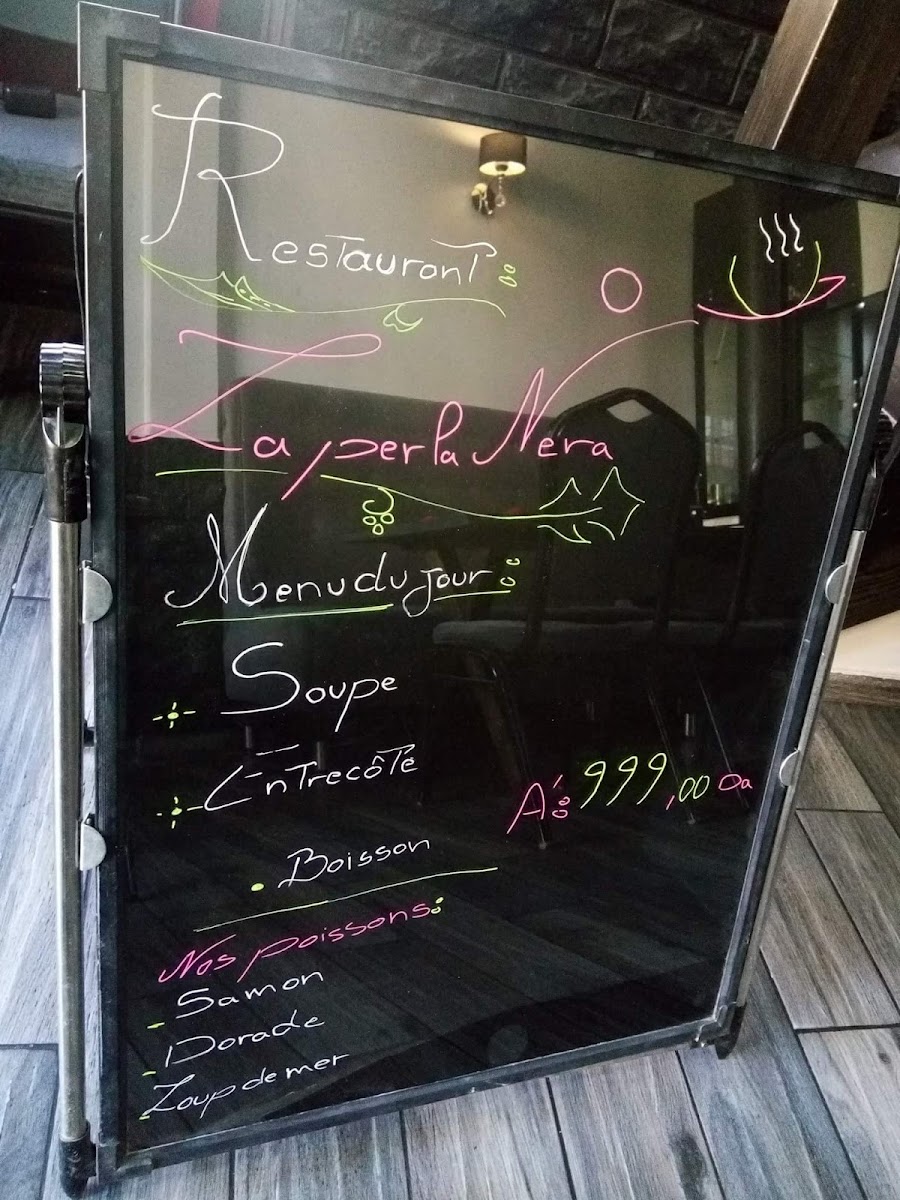 Restaurant:
La perla Nera
Menu du jour:
Soupe
Entrecôte
A: 999,00 Da
Boisson
Nos poissons:
- Samon
- Dorade
- Loup de mer